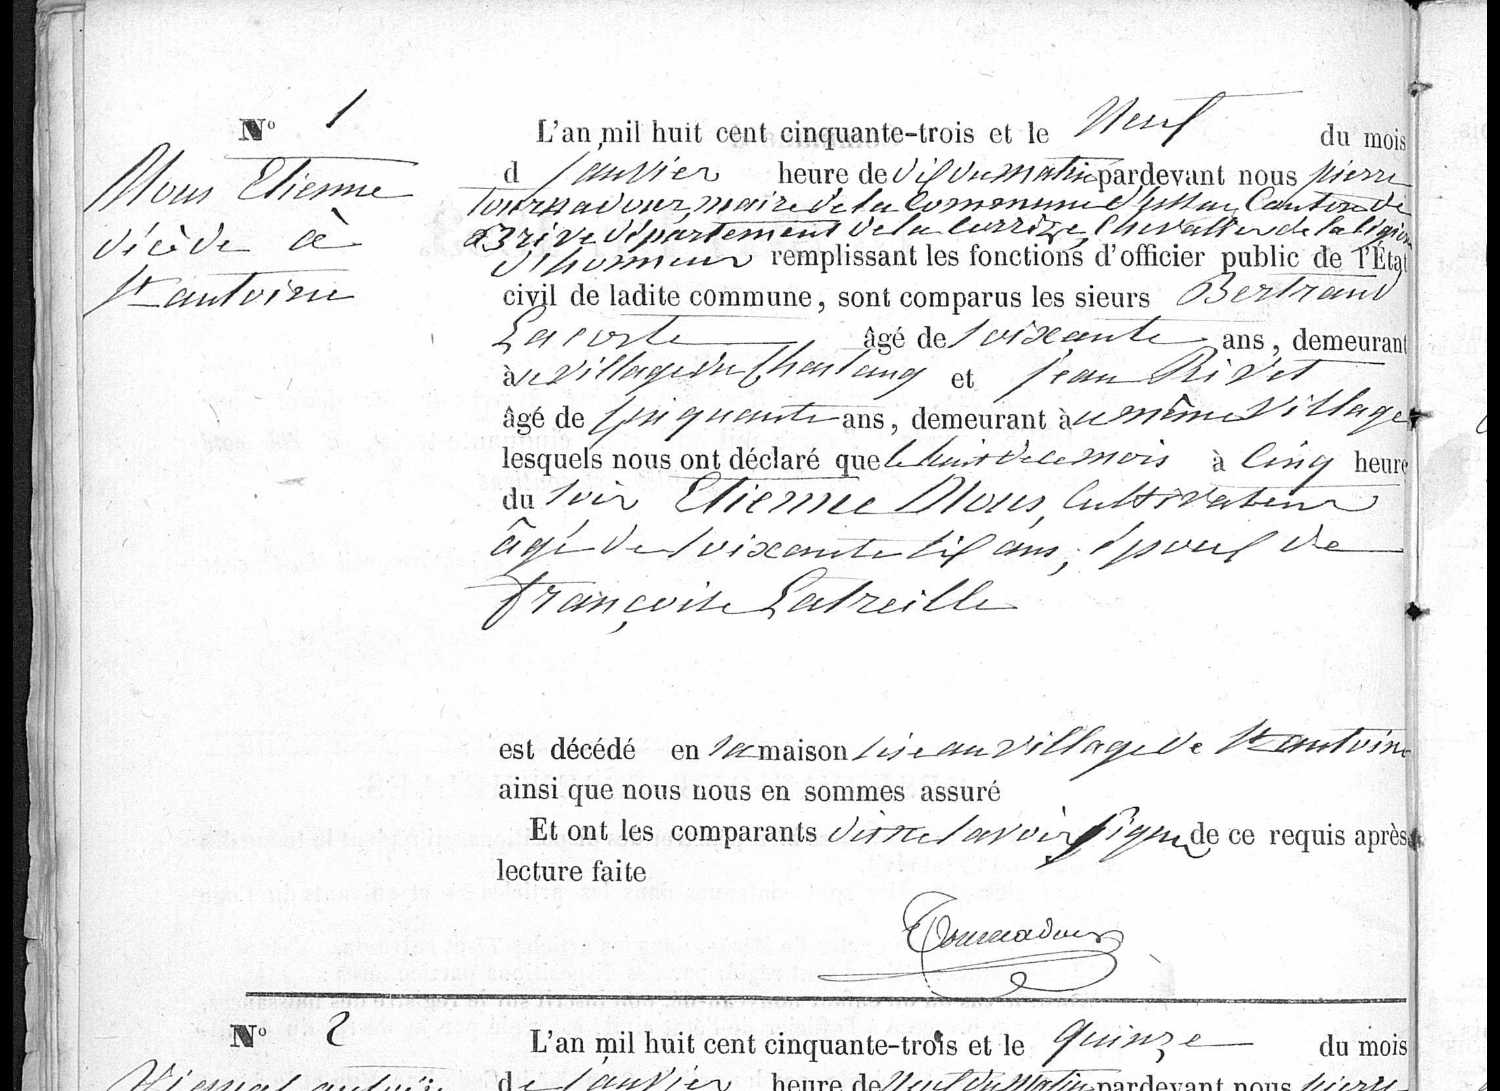 N° 1
Mons Etienne
décédé à
St antoine
L'an mil huit cent cinquante-trois et le Neuf du mois
d janvier heure de dix du matin pardevant nous pierre
Tournadour, maire de la Commune d'ussac, Canton de
Brive département de la Corrèze, Chevallier de la légion
d'honneur remplissant les fonctions d'officier public de l'État
civil de ladite commune, sont comparus les sieurs Bertrand
Lacoste âgé de soixante ans, demeurant
àu village du Chastang et jean Rivet
âgé de cinquante ans, demeurant àu même village
lesquels nous ont déclaré que le huit de ce mois à cinq heure
du soir Etienne Mons, Cultivateur
âgé de soixante dix ans, époux de
françoise Latreille
est décédé en sa maison sise au village de St antoine
ainsi que nous nous en sommes assuré
Et ont les comparants dit ne savoir signer de ce requis après
lecture faite
Tournadour
N° 2
L'an mil huit cent cinquante-trois et le quinze du mois
antoine
de janvier heure de Neuf du Matin pardevant nous pierre